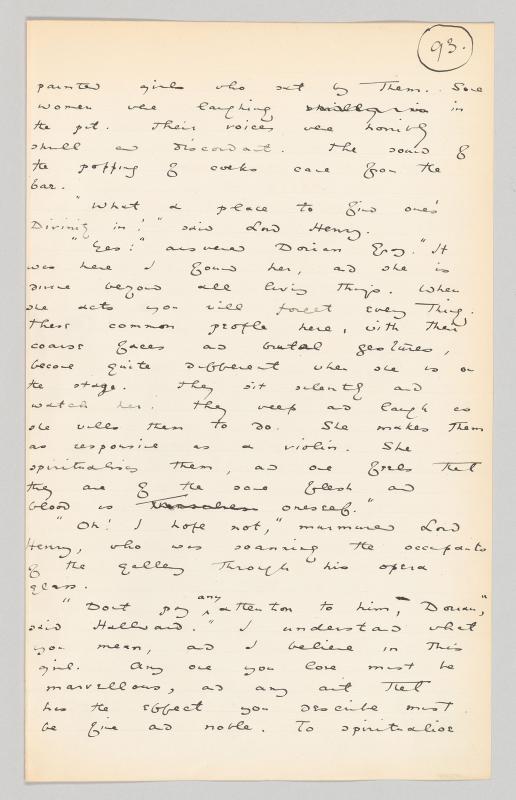 93.
painted girls who sat by them. Some
women were laughing in
the pit. Their voices were horribly
shrill and discordant. The sound of
the popping of corks came from the
bar.
"What a place to find one's
Divinity in!" said Lord Henry.
"Yes!" answered Dorian Gray. "It
was here I found her, and she is
divine beyond all living things. When
she acts you will forget every thing.
These common people here, with their
coarse faces and brutal gestures,
become quite different when she is on
the stage. They sit silently and
watch her. They weep and laugh as
she wills them to do. She makes them
as responsive as a violin. She
spiritualises them, and one feels that
they are of the same flesh and
blood as oneself."
"Oh! I hope not," murmured Lord
Henry, who was scanning the occupants
of the gallery through his opera
glass.
"Dont pay any attention to him, Dorian,"
said Hallward. "I understand what
you mean, and I believe in this
girl. Any one you love must be
marvellous, and any girl that
has the effect you describe must
be fine and noble. To spiritualise